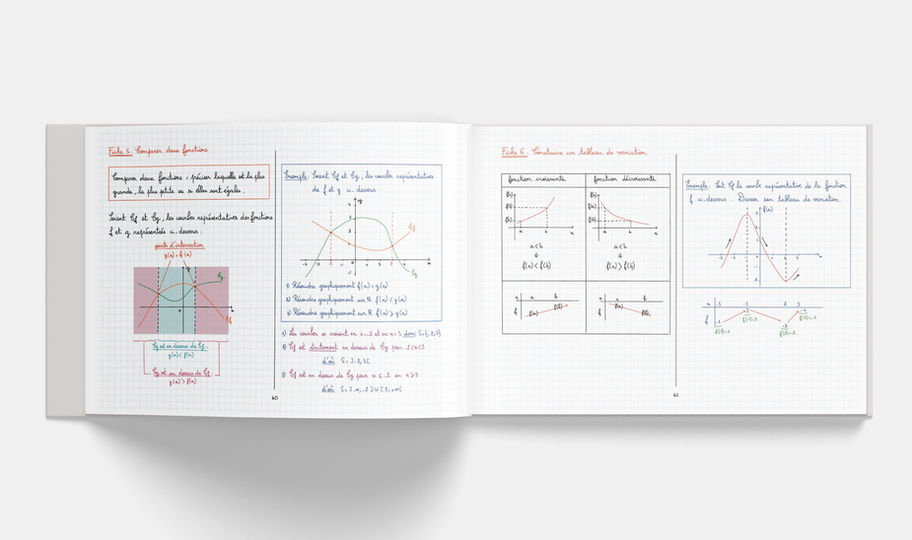 Fiche 5 : Comparer deux fonctions
Comparer deux fonctions : préciser laquelle est la plus
grande, la plus petite ou si elles sont égales.
Soient Cf et Cg, les courbes représentatives des fonctions
f et g représentées ci-dessous :
points d'intersection
g(x) = f(x)
Cg
Cf
Cg est en dessous de Cf
g(x) < f(x)
Cg est au dessus de Cf
g(x) > f(x)
60
Exemple : Soient Cf et Cg, les courbes représentatives
de f et g ci-dessous
Cf
Cg
1) Résoudre graphiquement f(x) = g(x)
2) Résoudre graphiquement sur R f(x) < g(x)
3) Résoudre graphiquement sur R f(x) ≥ g(x)
1) Les courbes se croisent en x = -2 et en x = 3 donc S = {-2; 3}
2) Cf est strictement en dessous de Cg pour
d'où S = ]-2; 3[
3) Cf est au dessus de Cg pour x ≤ -2 ou x ≥ 3
d'où S = ]-∞; -2] U [3; +∞[
Fiche 6 : Construire un tableau de variation
fonction croissante fonction décroissante
f(b) f(a)
f(a) f(b)
a b a b
a < b a < b
⇓ ⇓
f(a) < f(b) f(a) > f(b)
x a b x a b
f f(a) f(b) f f(a) f(b)
Exemple : Soit Cf la courbe représentative de la fonction
f ci-dessous. Dresser son tableau de variation.
f(x)
x -3 -1 2 3
f
61